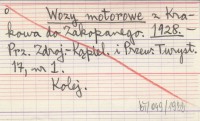 Wozy motorowe z Kra-
kowa do Zakopanego. 1928.-
Prz. Zdroj.-Kąpiel. i Przew. Turyst.
17, nr 1.
Kolej.